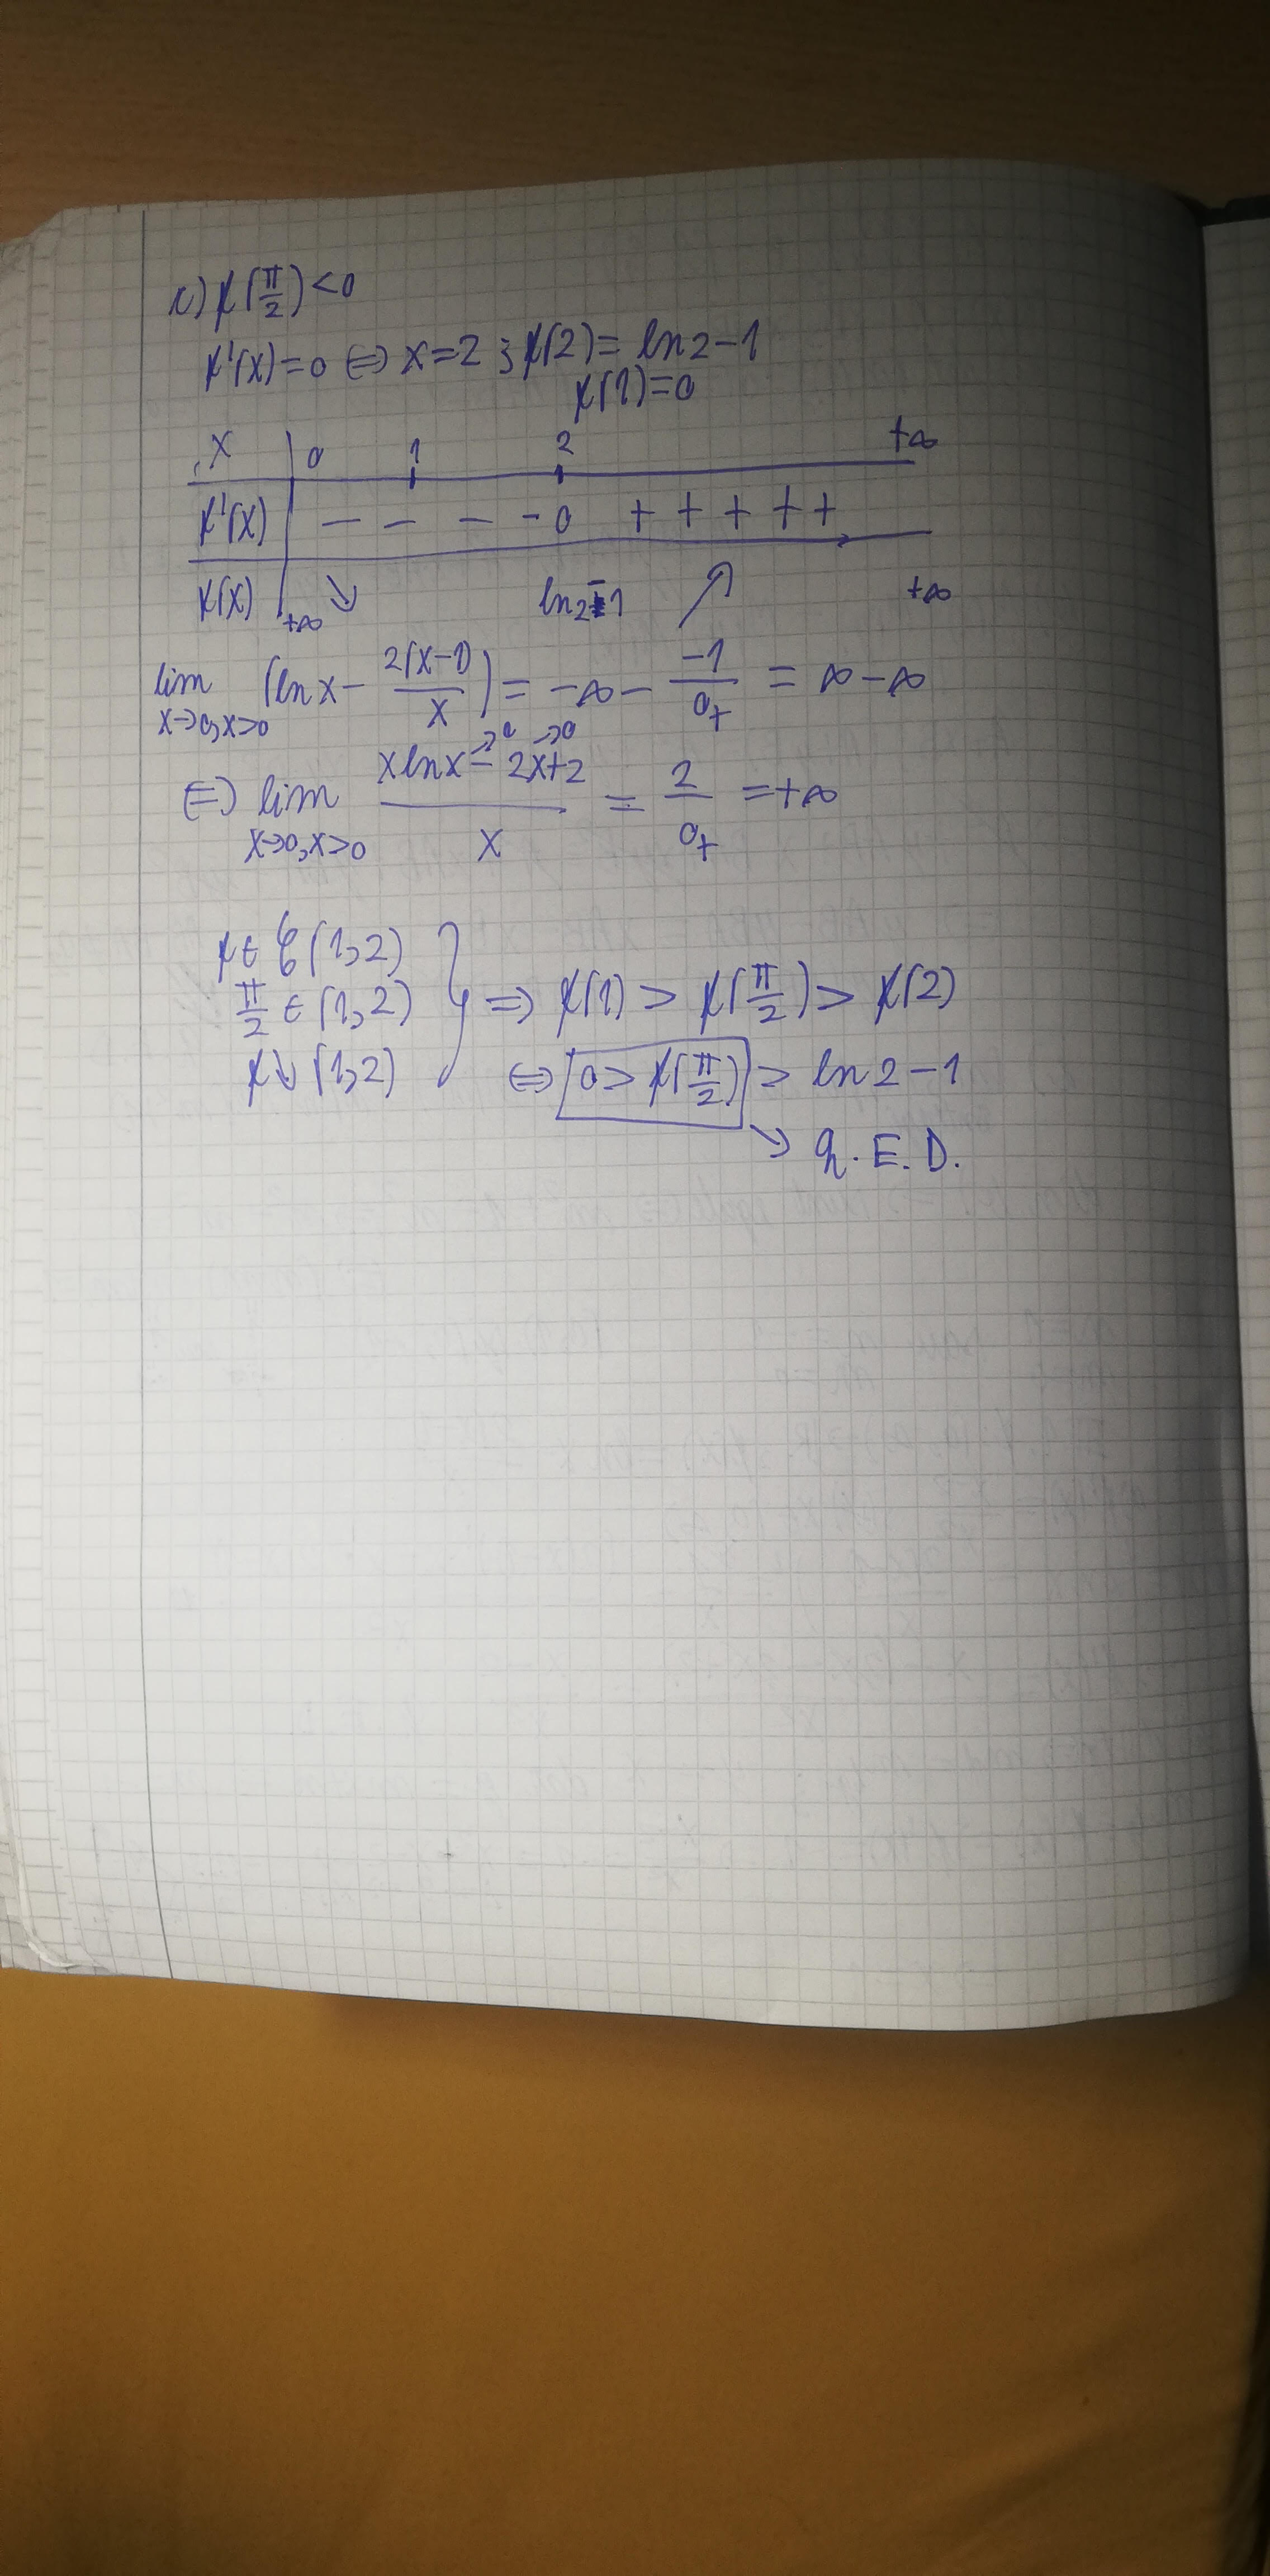 c) f(π/2) < 0
f'(x)=0 ⇔ x=2 ; f(2)= ln2-1
f(1)=0
x | 0 1 2 +∞
f'(x) | - - - - 0 + + + + +
f(x) | +∞ ↘ ln2-1 ↗ +∞
lim x→0,x>0 (ln x - 2(x-1)/x) = -∞ - -1/0₊ = ∞-∞
⇔ lim x→0,x>0 (x ln x →0 - 2x →0 + 2)/x = 2/0₊ = +∞
f ∈ C(1,2)
π/2 ∈ (1,2) } ⇒ f(1) > f(π/2) > f(2)
f ↘ (1,2) ⇔ 0 > f(π/2) > ln 2-1
↘ Q.E.D.